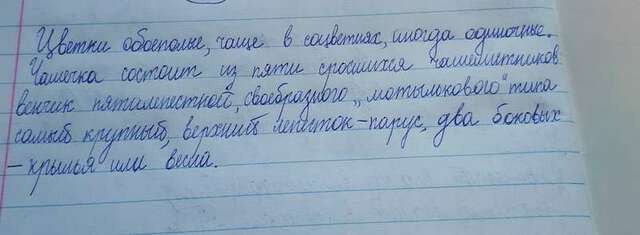 Цветки обоеполые, чаще в соцветиях, иногда одиночные.
Чашечка состоит из пяти сросшихся чашелистников
венчик пятилепестной, своеобразного „мотылькового" типа
самый крупный, верхний лепесток-парус, два боковых
-крылья или весла.